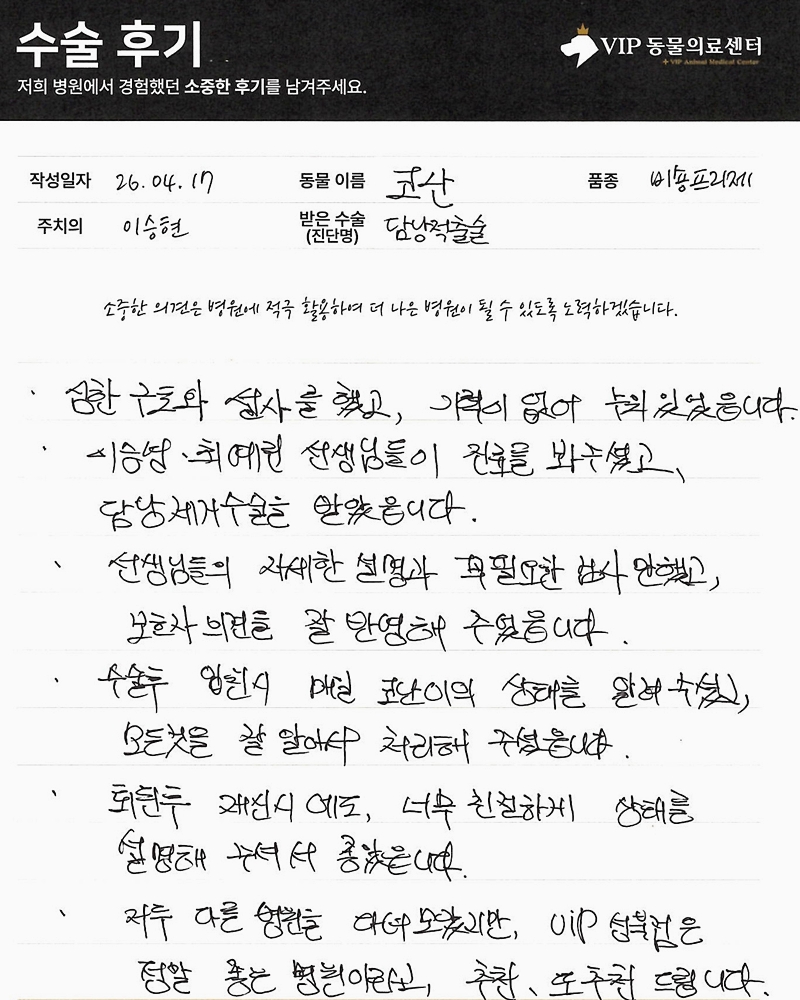 수술 후기
VIP 동물의료센터
VIP Animal Medical Center
저희 병원에서 경험했던 소중한 후기를 남겨주세요.
작성일자 26.04.17 동물 이름 코산 품종 비숑프리제
주치의 이승현 받은 수술 (진단명) 담낭적출술
소중한 의견은 병원에 적극 활용하여 더 나은 병원이 될 수 있도록 노력하겠습니다.
· 심한 구토와 설사를 했고, 기력이 없어 누워있었읍니다.
· 이승현·최예린 선생님들이 진료를 봐주셨고,
담낭제거수술을 받았읍니다.
· 선생님들의 자세한 설명과 꼭 필요한 검사만했고,
보호자 의견을 잘 반영해 주었읍니다.
· 수술후 입원시 매일 의 상태를 알려주셨고,
모든것을 잘 알아서 처리해 주셨읍니다.
· 퇴원후 재진시에도, 너무 친절하게 상태를
설명해 주셔서 좋았읍니다.
· 저두 다른 병원을 다녀보았지만, VIP 성북점은
정말 좋은 병원이라고, 추천, 또추천 드립니다.